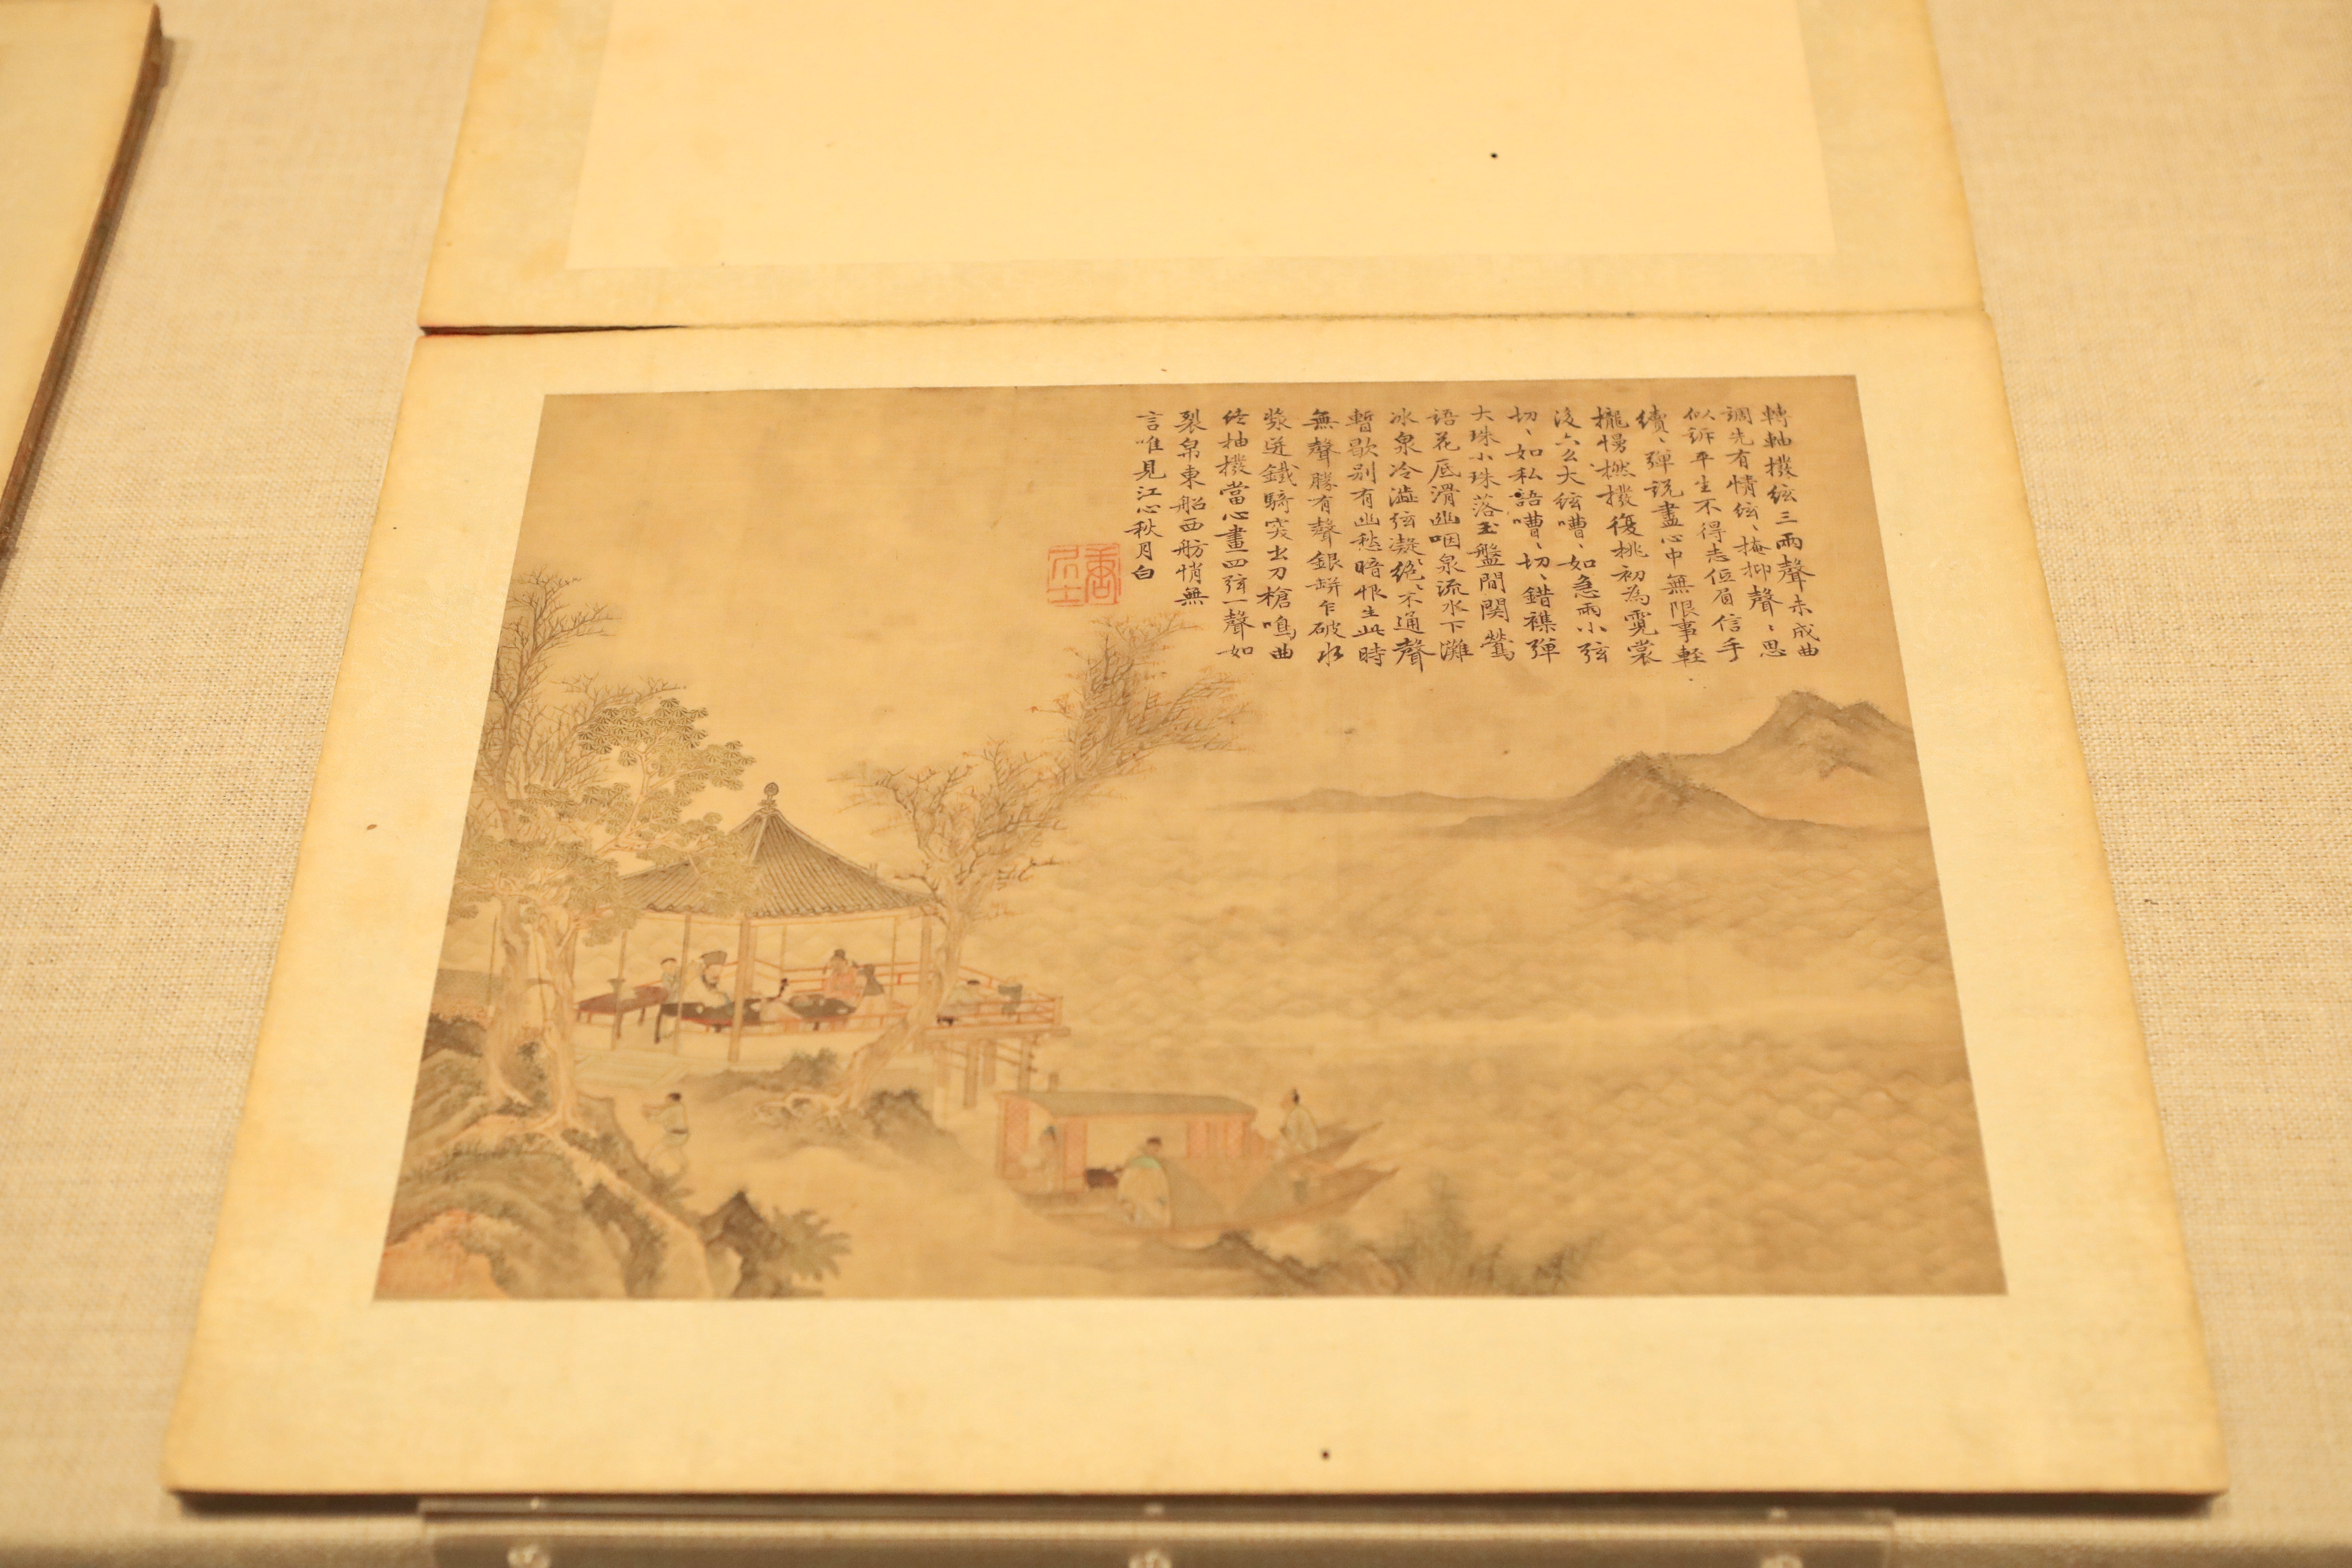 轉軸撥絃三兩聲未成曲
調先有情絃〻掩抑聲〻思
似訴平生不得志低眉信手
續〻彈説盡心中無限事輕
攏慢撚撥復挑初為霓裳
後六么大絃嘈〻如急雨小弦
切〻如私語嘈〻切〻錯襍彈
大珠小珠落玉盤間関鶯
語花底滑幽咽泉流水下灘
冰泉冷澁弦凝絶〻不通聲
暫歇别有幽愁暗恨生此時
無聲勝有聲銀缾乍破水
漿迸鐵騎突出刀槍鳴曲
終抽撥當心畫四弦一聲如
裂帛東船西舫悄無
言唯見江心秋月白